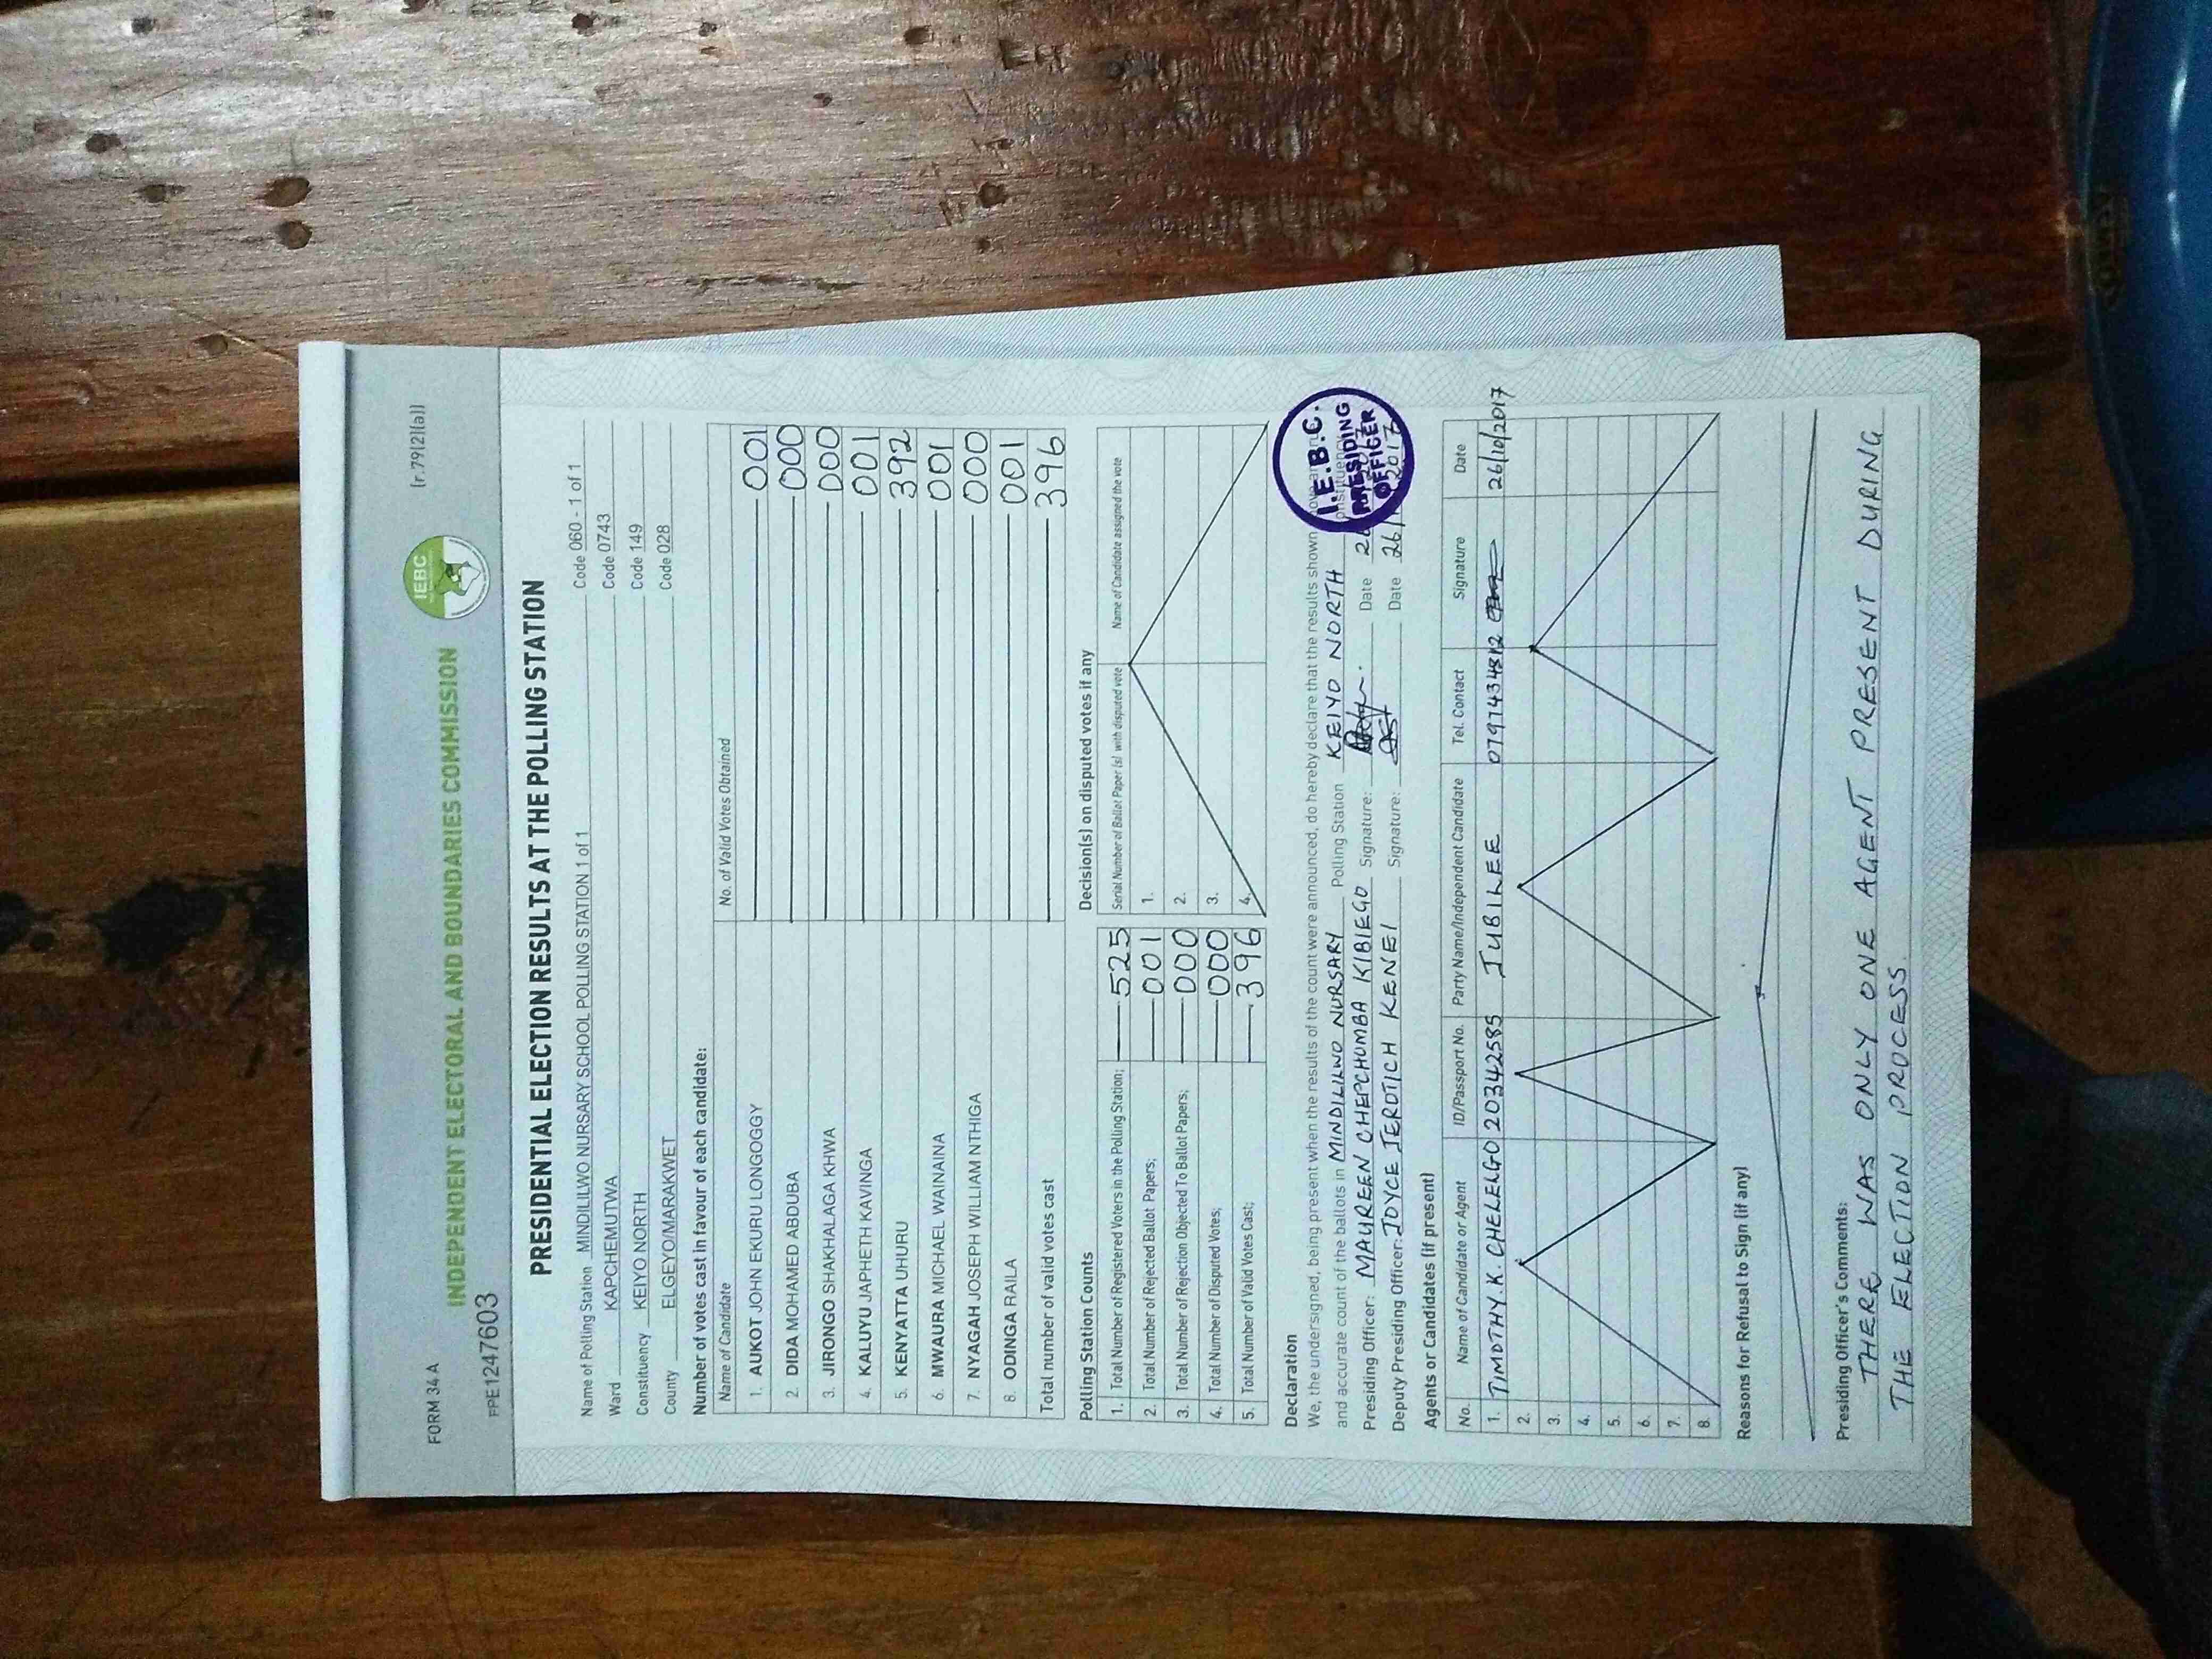 FORM 34 A
(r.79(2)(a))
INDEPENDENT ELECTORAL AND BOUNDARIES COMMISSION
IEBC
FPE1247603
PRESIDENTIAL ELECTION RESULTS AT THE POLLING STATION
Name of Polling Station MINDILILWO NURSARY SCHOOL POLLING STATION 1 of 1 Code 060 - 1 of 1
Ward KAPCHEMUTWA Code 0743
Constituency KEIYO NORTH Code 149
County ELGEYO/MARAKWET Code 028
Number of votes cast in favour of each candidate:
Name of Candidate No. of Valid Votes Obtained
1. AUKOT JOHN EKURU LONGOGGY 001
2. DIDA MOHAMED ABDUBA 000
3. JIRONGO SHAKHALAGA KHWA 000
4. KALUYU JAPHETH KAVINGA 001
5. KENYATTA UHURU 392
6. MWAURA MICHAEL WAINAINA 001
7. NYAGAH JOSEPH WILLIAM NTHIGA 000
8. ODINGA RAILA 001
Total number of valid votes cast 396
Polling Station Counts
1. Total Number of Registered Voters in the Polling Station; 525
2. Total Number of Rejected Ballot Papers; 001
3. Total Number of Rejection Objected To Ballot Papers; 000
4. Total Number of Disputed Votes; 000
5. Total Number of Valid Votes Cast; 396
Decision(s) on disputed votes if any
Serial Number of Ballot Paper (s) with disputed vote Name of Candidate assigned the vote
1.
2.
3.
4.
Declaration
We, the undersigned, being present when the results of the count were announced, do hereby declare that the results shown
and accurate count of the ballots in MINDILILWO NURSARY Polling Station KEIYO NORTH
Presiding Officer: MAUREEN CHEPCHUMBA KIBIEGO Signature: Date
Deputy Presiding Officer: JOYCE JEROTICH KENEI Signature: Date 26/ 2017
I.E.B.C.
PRESIDING
OFFICER
Agents or Candidates (if present)
No. Name of Candidate or Agent ID/Passport No. Party Name/Independent Candidate Tel. Contact Signature Date
1. TIMOTHY.K. CHELELGO 20342585 JUBILEE 26/10/2017
2.
3.
4.
5.
6.
7.
8.
Reasons for Refusal to Sign (if any)
Presiding Officer's Comments:
THERE WAS ONLY ONE AGENT PRESENT DURING
THE ELECTION PROCESS.